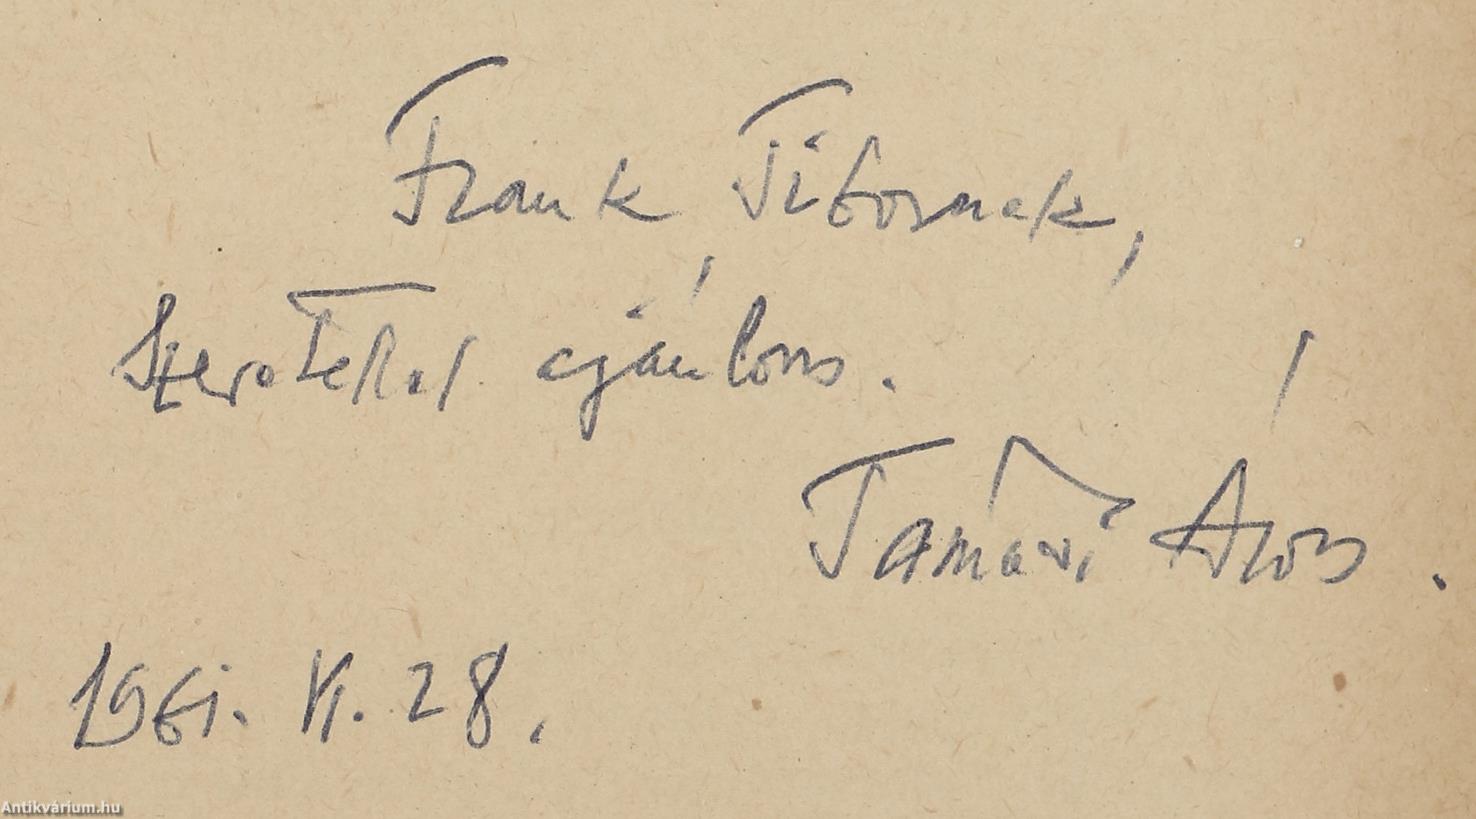 Frank Tibornak,
szeretettel ajánlom.
Tamási Áron.
1961. VI. 28.
Antikvárium.hu